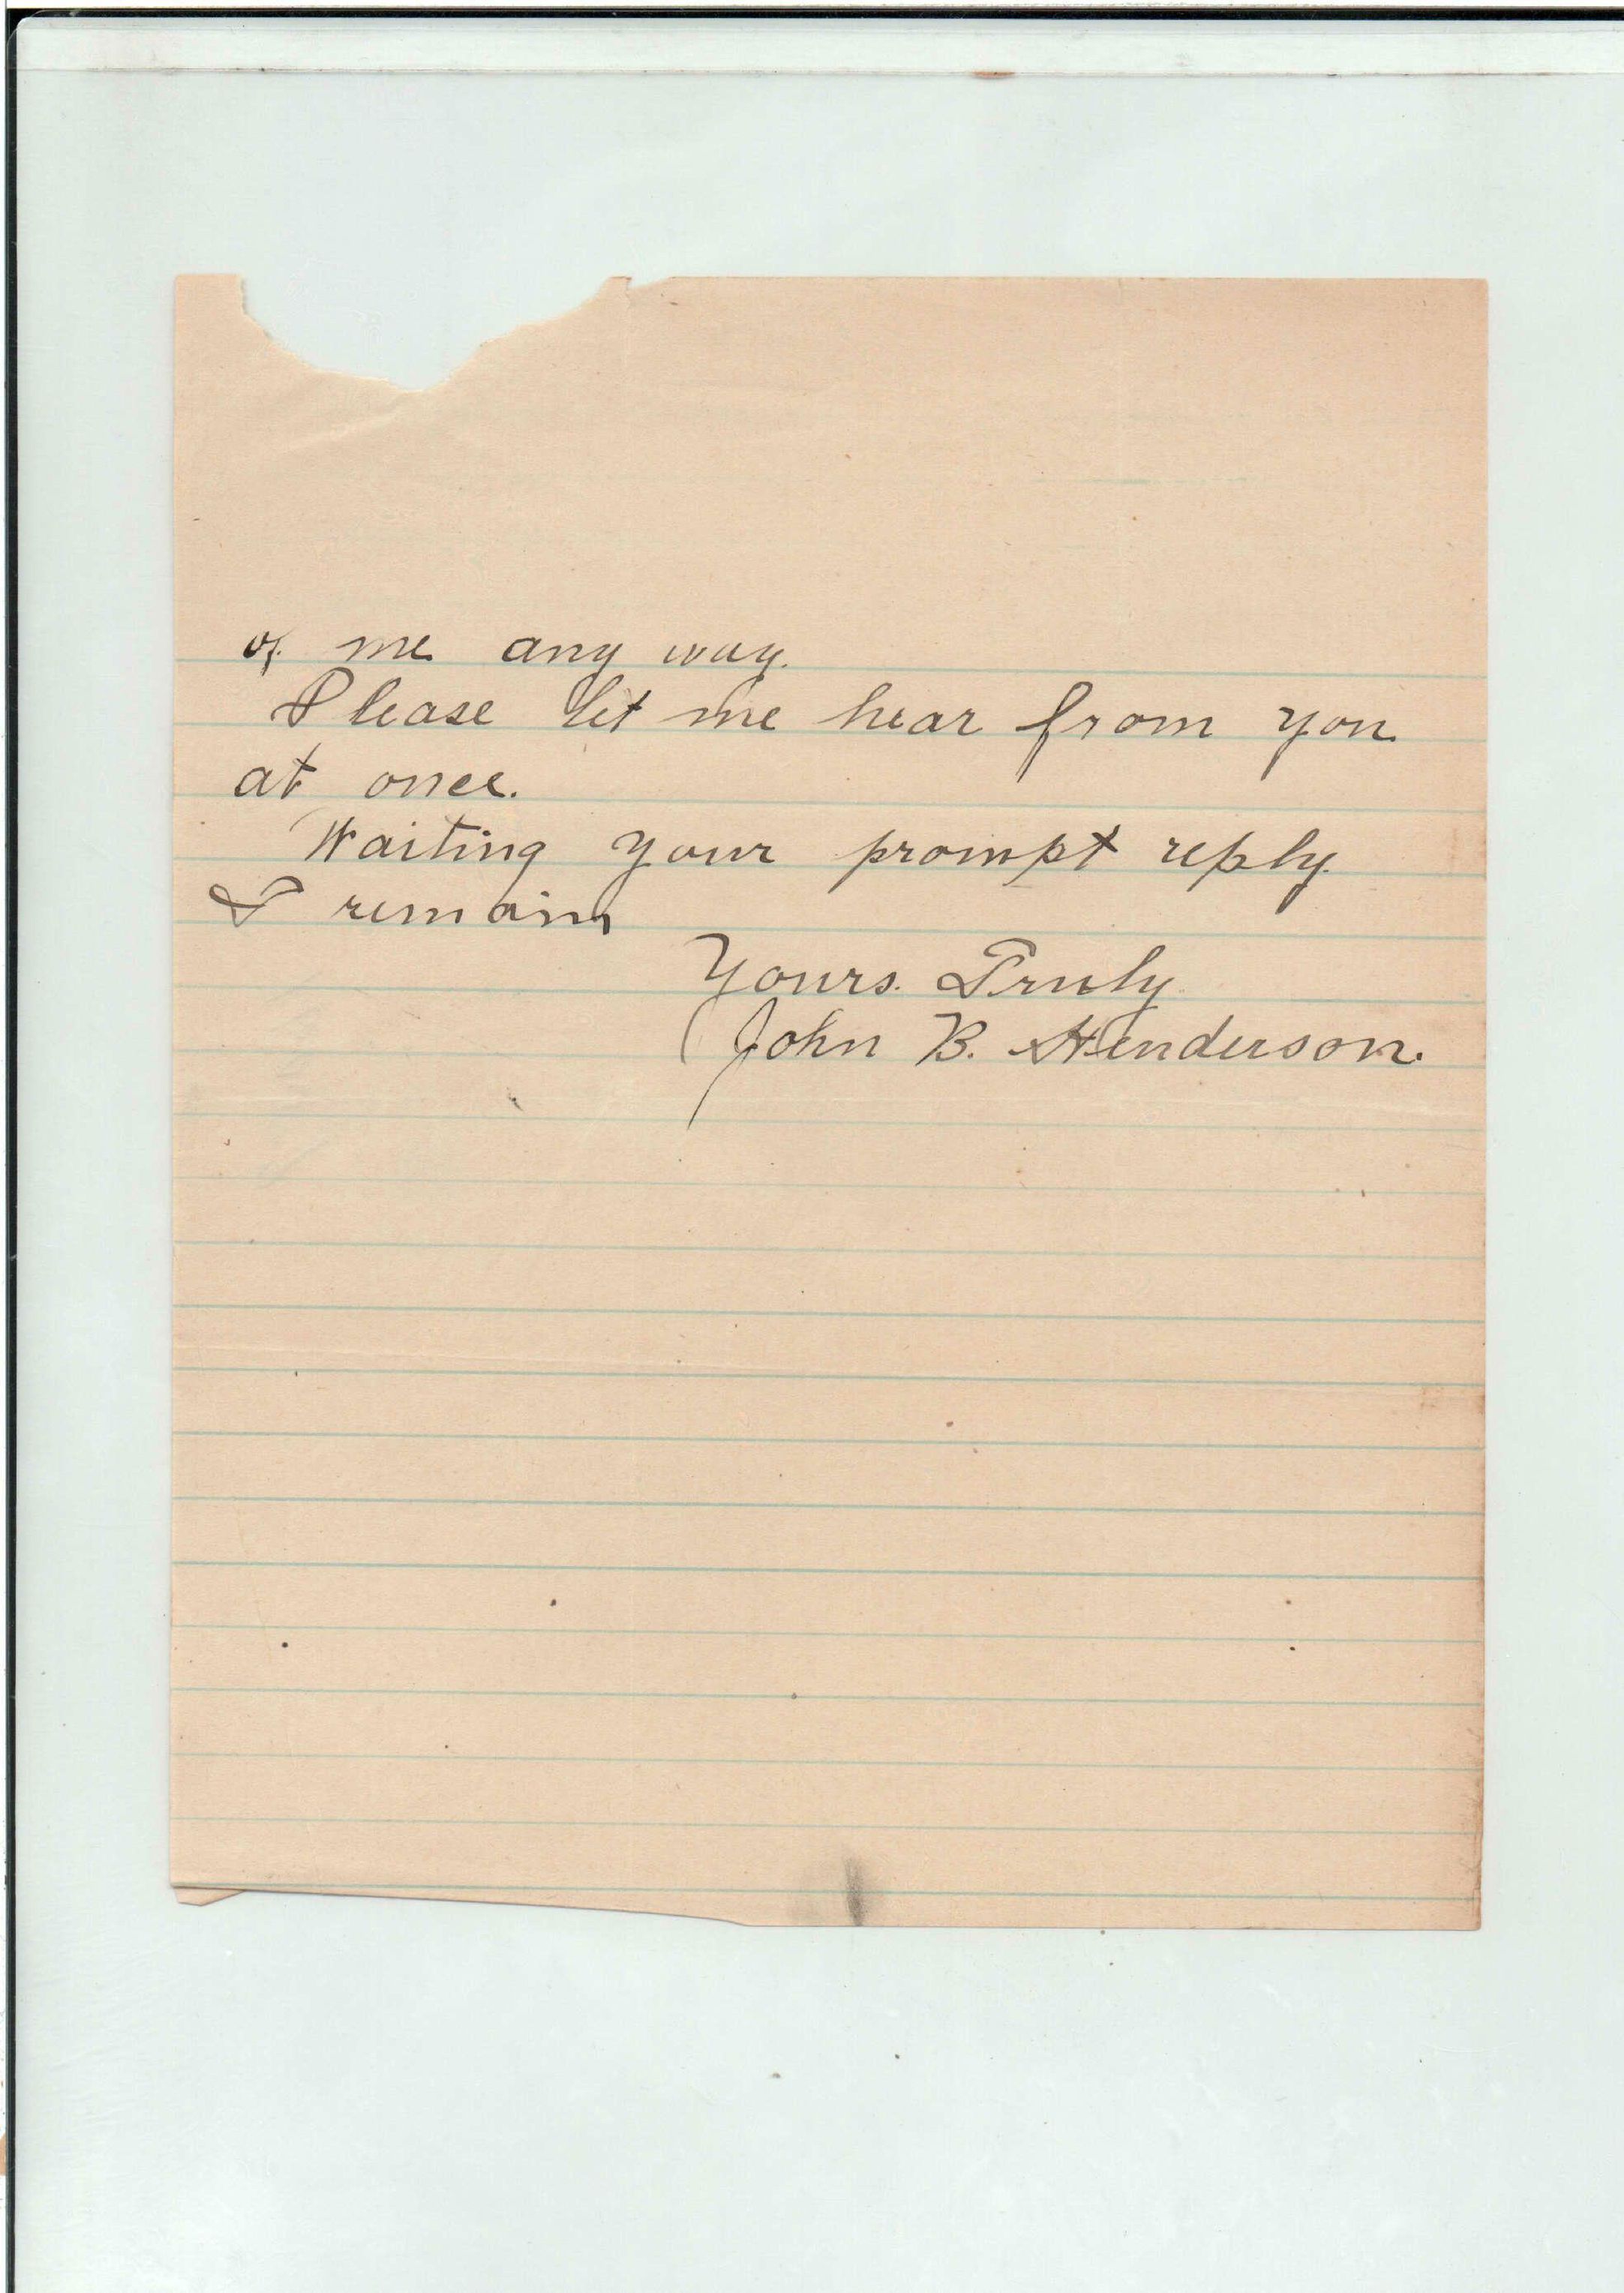 of me any way.
Please let me hear from you
at once.
Waiting your prompt reply
I remain
Yours. Truly
John B. Henderson.